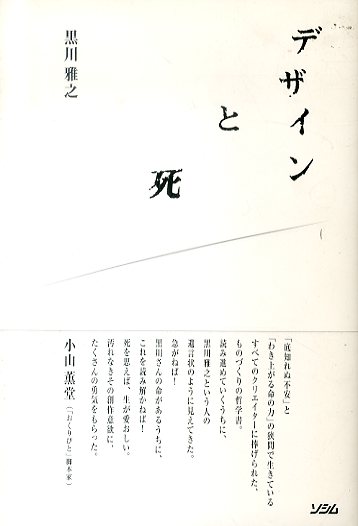 デザイン
と
死
黒川雅之
「底知れぬ不安」と
「わき上がる命の力」の狭間で生きている
すべてのクリエイターに捧げられた、
ものづくりの哲学書。
読み進めていくうちに、
黒川雅之という人の
遺言状のように見えてきた。
急がねば！
黒川さんの命があるうちに、
これを読み解かねば！
死を思えば、生が愛おしい。
汚れなきその創作意欲に、
たくさんの勇気をもらった。
小山薫堂(「おくりびと」脚本家)
ソシム